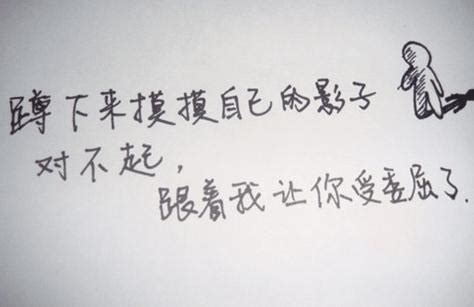 蹲下来摸摸自己的影子
对不起，
跟着我让你受委屈了.